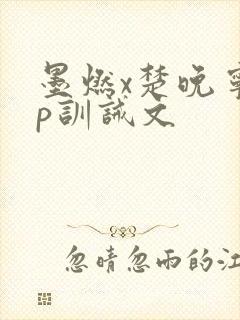 墨燃x楚晚寧
p訓誡文
忽晴忽雨的江